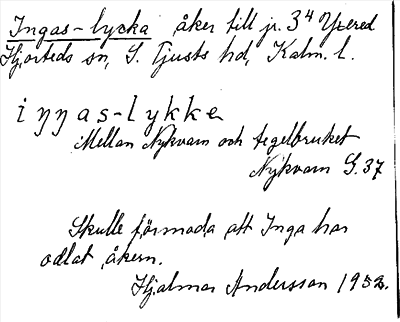 Ingas-lycka åker till jr. 3⁴ Yxered
Hjorteds sn, S. Tjusts hd, Kalm. l.
iŋŋas-lykke
Mellan Nykvarn och tegelbruket
Nykvarn G. 37
Skulle förmoda att Inga har
odlat åkern.
Hjalmar Andersson 1932.